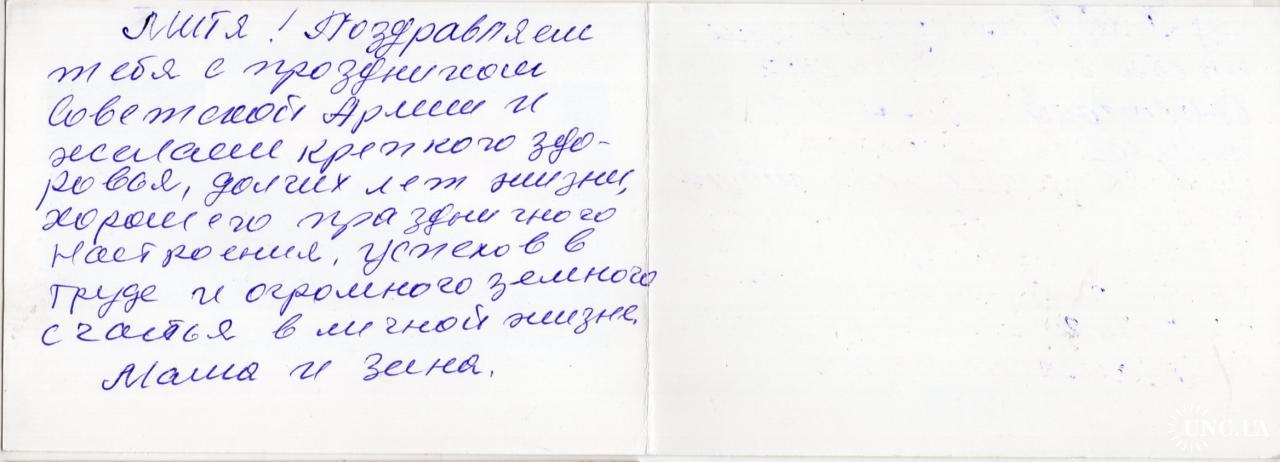 Митя! Поздравляем
тебя с праздником
Советской Армии и
желаем крепкого здо-
ровья, долгих лет жизни,
хорошего праздничного
настроения, успехов в
труде и огромного земного
счастья в личной жизне.
Маша и Зина.
UNC.UA